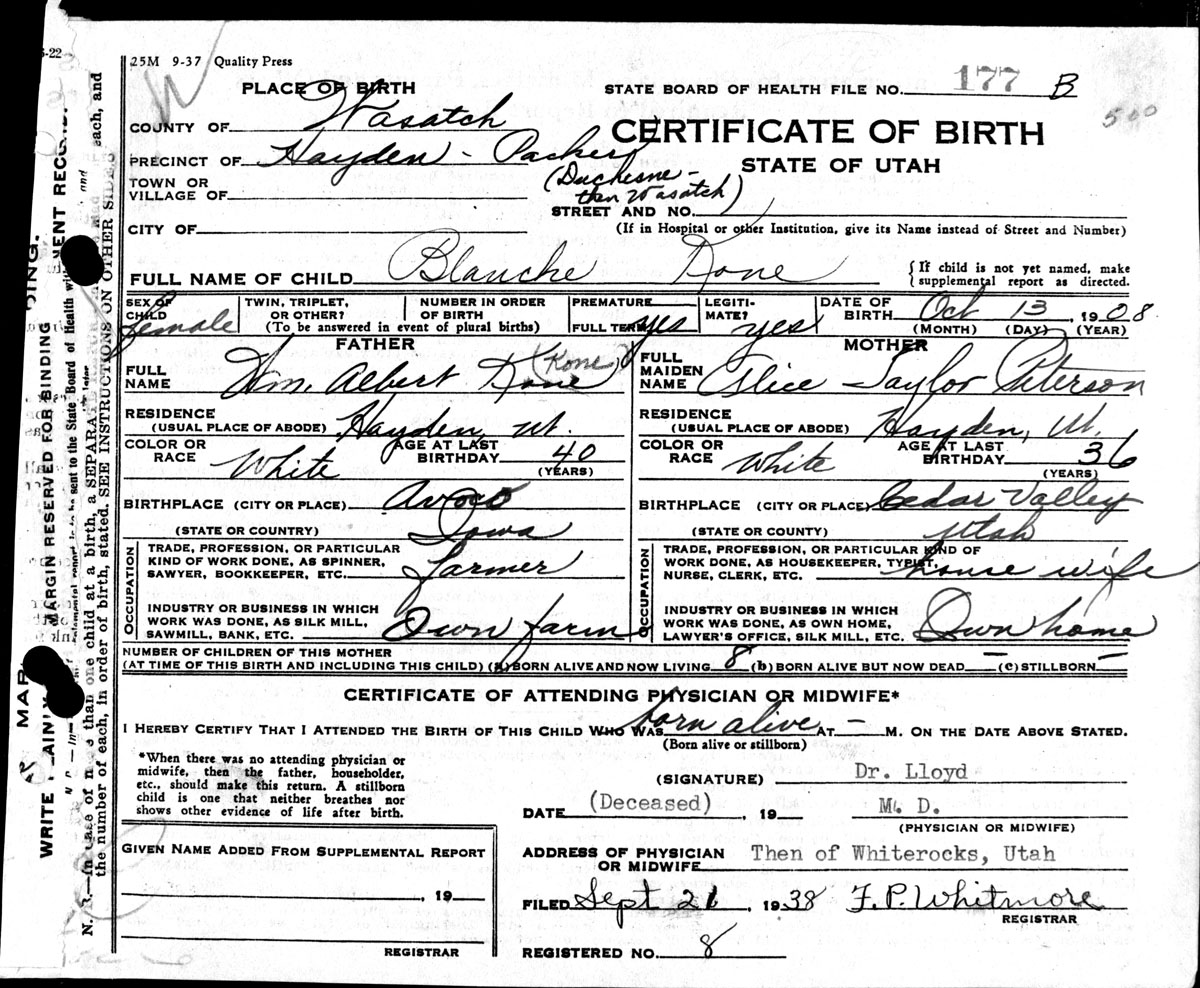 25M 9-37 Quality Press
PLACE OF BIRTH
STATE BOARD OF HEALTH FILE NO. 177 B
500
COUNTY OF Wasatch
CERTIFICATE OF BIRTH
PRECINCT OF Hayden - Packer
STATE OF UTAH
(Duchesne - then Wasatch)
TOWN OR VILLAGE OF
STREET AND NO.
CITY OF
(If in Hospital or other Institution, give its Name instead of Street and Number)
FULL NAME OF CHILD Blanche Kone
{If child is not yet named, make supplemental report as directed.
SEX OF CHILD female
TWIN, TRIPLET, OR OTHER?
NUMBER IN ORDER OF BIRTH
(To be answered in event of plural births)
PREMATURE
FULL TERM yes
LEGITIMATE? yes
DATE OF BIRTH Oct 13, 1908
(MONTH) (DAY) (YEAR)
FATHER
FULL NAME Wm. Albert Kone (Kone)
RESIDENCE (USUAL PLACE OF ABODE) Hayden, Ut.
COLOR OR RACE White
AGE AT LAST BIRTHDAY 40 (YEARS)
BIRTHPLACE (CITY OR PLACE) Avoco
(STATE OR COUNTRY) Iowa
OCCUPATION
TRADE, PROFESSION, OR PARTICULAR KIND OF WORK DONE, AS SPINNER, SAWYER, BOOKKEEPER, ETC. farmer
INDUSTRY OR BUSINESS IN WHICH WORK WAS DONE, AS SILK MILL, SAWMILL, BANK, ETC. Own farm
MOTHER
FULL MAIDEN NAME Elice Taylor Peterson
RESIDENCE (USUAL PLACE OF ABODE) Hayden, Ut.
COLOR OR RACE White
AGE AT LAST BIRTHDAY 36 (YEARS)
BIRTHPLACE (CITY OR PLACE) Cedar Valley
(STATE OR COUNTY) Utah
OCCUPATION
TRADE, PROFESSION, OR PARTICULAR KIND OF WORK DONE, AS HOUSEKEEPER, TYPIST, NURSE, CLERK, ETC. house wife
INDUSTRY OR BUSINESS IN WHICH WORK WAS DONE, AS OWN HOME, LAWYER'S OFFICE, SILK MILL, ETC. Own home
NUMBER OF CHILDREN OF THIS MOTHER
(AT TIME OF THIS BIRTH AND INCLUDING THIS CHILD) (a) BORN ALIVE AND NOW LIVING 8 (b) BORN ALIVE BUT NOW DEAD — (c) STILLBORN —
CERTIFICATE OF ATTENDING PHYSICIAN OR MIDWIFE*
I HEREBY CERTIFY THAT I ATTENDED THE BIRTH OF THIS CHILD WHO WAS born alive AT — M. ON THE DATE ABOVE STATED.
(Born alive or stillborn)
*When there was no attending physician or
midwife, then the father, householder,
etc., should make this return. A stillborn
child is one that neither breathes nor
shows other evidence of life after birth.
(SIGNATURE) Dr. Lloyd
DATE (Deceased), 19 M. D.
(PHYSICIAN OR MIDWIFE)
GIVEN NAME ADDED FROM SUPPLEMENTAL REPORT
, 19
REGISTRAR
ADDRESS OF PHYSICIAN OR MIDWIFE Then of Whiterocks, Utah
FILED Sept 21, 1938 F. P. Whitmore
REGISTRAR
REGISTERED NO. 8
MARGIN RESERVED FOR BINDING
the number of each, in order of birth, stated. SEE INSTRUCTIONS ON OTHER SIDE